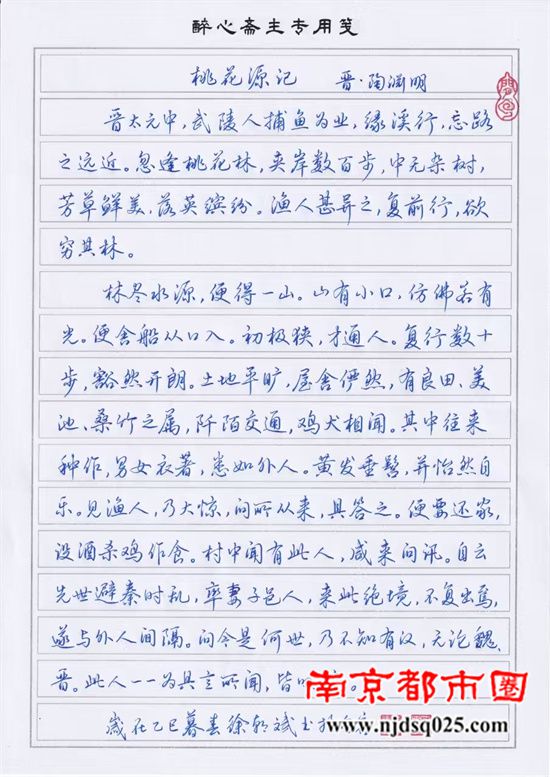 醉心斋主专用笺
桃花源记 晋·陶渊明
晋太元中，武陵人捕鱼为业，缘溪行，忘路
之远近。忽逢桃花林，夹岸数百步，中无杂树，
芳草鲜美，落英缤纷。渔人甚异之，复前行，欲
穷其林。
林尽水源，便得一山。山有小口，仿佛若有
光。便舍船从口入。初极狭，才通人。复行数十
步，豁然开朗。土地平旷，屋舍俨然，有良田、美
池、桑竹之属，阡陌交通，鸡犬相闻。其中往来
种作，男女衣著，悉如外人。黄发垂髫，并怡然自
乐。见渔人，乃大惊，问所从来，具答之。便要还家，
设酒杀鸡作食。村中闻有此人，咸来问讯。自云
先世避秦时乱，率妻子邑人，来此绝境，不复出焉，
遂与外人间隔。问今是何世，乃不知有汉，无论魏、
晋。此人一一为具言所闻，皆
岁在乙巳暮春徐朝斌书
南京都市圈
www.njdsq025.com